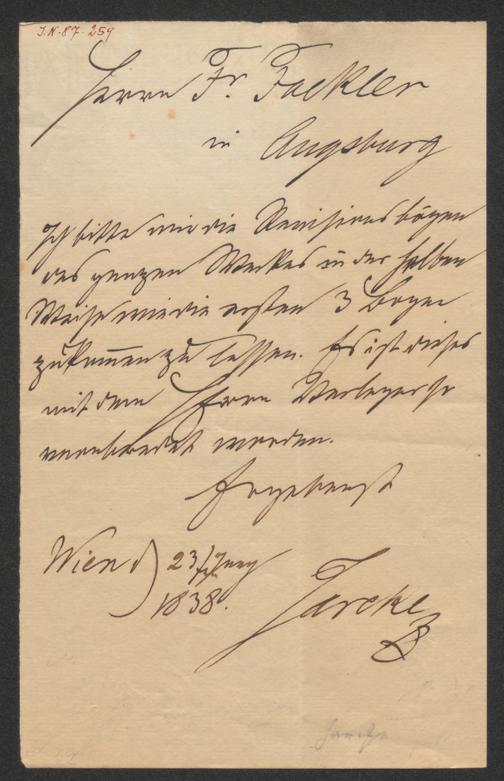 J.N. 87.259
Herrn Fr. Fackler
in Augsburg
Ich bitte mir die Revisionsbögen
des ganzen Werkes in derselben
Weise wie die ersten 3 Bogen
zukommen zu lassen. Es ist dieses
mit dem Herrn Verleger so
verabredet worden.
Ergebenst
Wien d 23/ Juny
1838.
Jarcke
Jarcke